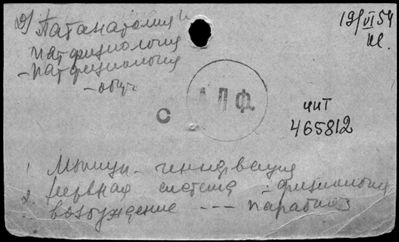 Патанатомия
патфизиология
- патфизиология
- общ.
19/VI 54
С АЛФ.
чит
465812
1 Мышцы - иннервация
2 нервная система - физиология
возбуждение --- парабиоз